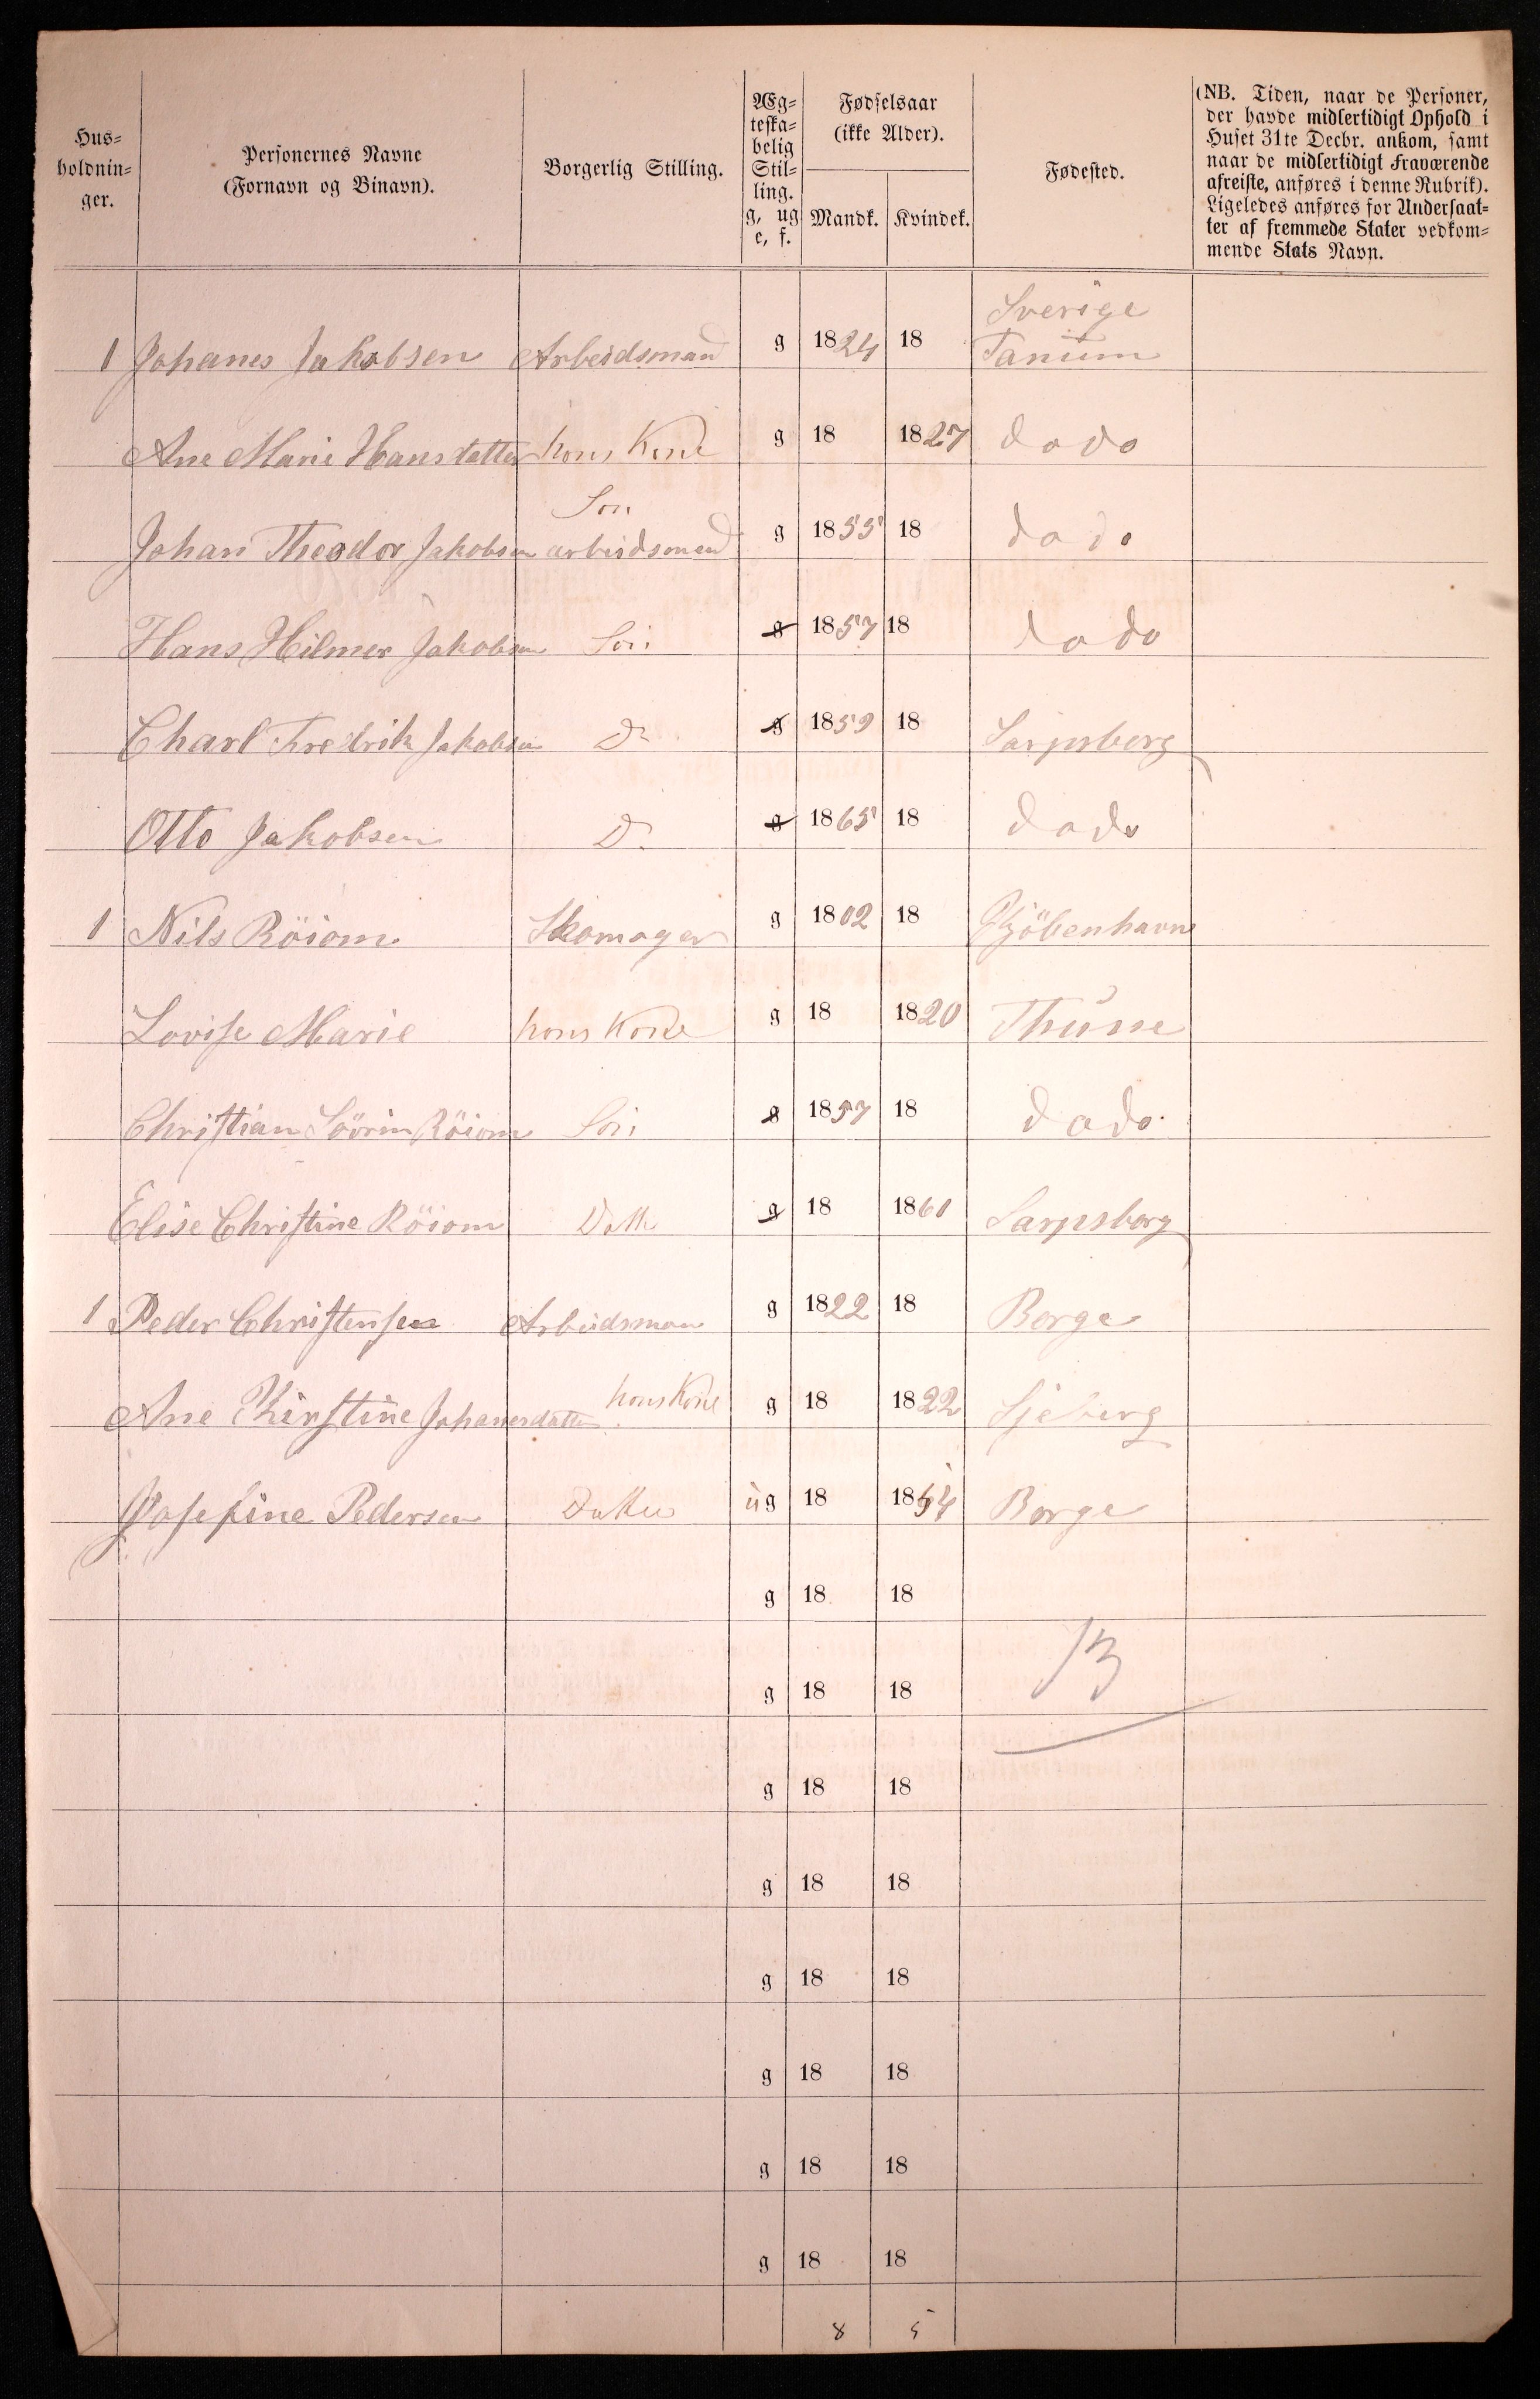 Hus=
holdnin=
ger.
Personernes Navne
(Fornavn og Binavn).
Borgerlig Stilling.
Æg=
teska=
belig
Stil=
ling.
g, ug
e, f.
Fødselsaar
(ikke Alder).
Mandk. Kvindek.
Fødested.
(NB. Tiden, naar de Personer,
der havde midlertidigt Ophold i
Huset 31te Decbr. ankom, samt
naar de midlertidigt Fraværende
afreiste, anføres i denne Rubrik).
Ligeledes anføres for Undersaat=
ter af fremmede Stater vedkom=
mende Stats Navn.
Sverige
1 Johanes Jakobsen Arbeidsmand g 1824 18 Tanum
Ane Marie Hansdatter hans Kone g 18 1827 do do
Son
Johan Theodor Jakobsen arbeidsmand g 1855 18 do do
Hans Hilmer Jakobsen Son g 1857 18 do do
Charl Fredrik Jakobsen Do g 1859 18 Sarpsborg
Otto Jakobsen Do g 1865 18 do do
1 Nils Röiom Skomager g 1802 18 Kjöbenhavn
Lovise Marie hans Kone g 18 1820 Thune
Christian Söörin Röiom Son g 1857 18 do do
Elise Christine Röiom Datter g 18 1860 Sarpsborg
1 Peder Christensen Arbeidsman g 1822 18 Borge
Ane Kirstine Johanesdatter hans Kone g 18 1822 Sjeberg
Josefine Pedersen Datter ug 18 1854 Borge
g 18 18
g 18 18
13
g 18 18
g 18 18
g 18 18
g 18 18
g 18 18
g 18 18
8 5